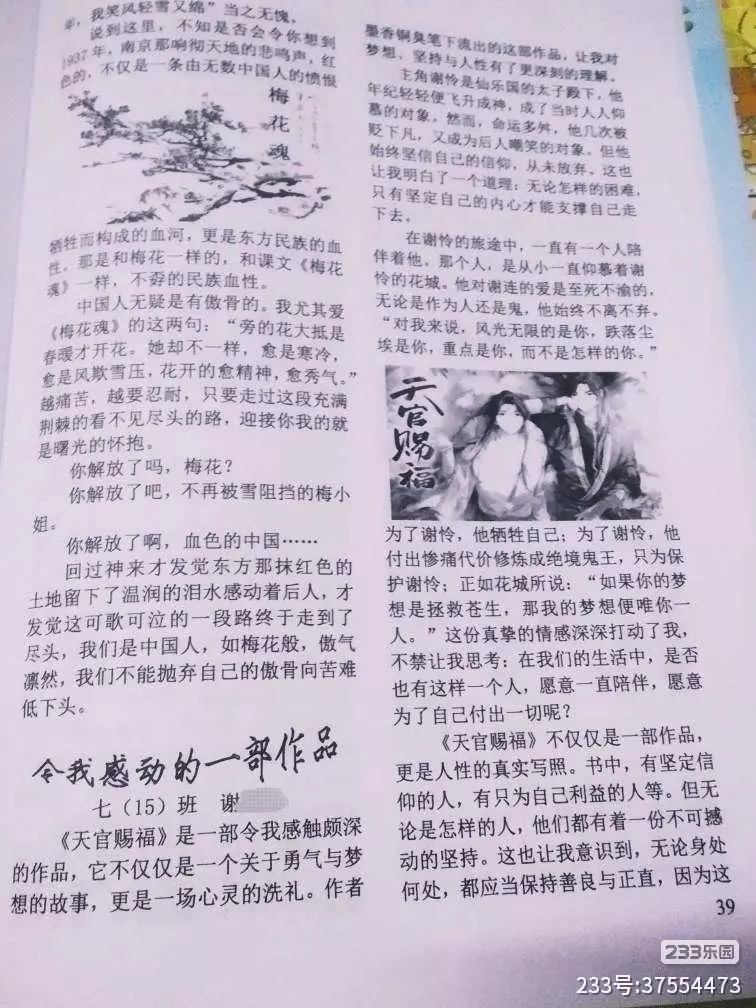 率，我笑风轻雪又绵”当之无愧。
说到这里，不知是否会令你想到
1937年，南京那响彻天地的悲鸣声，红
色的，不仅是一条由无数中国人的愤恨
梅花魂
牺牲而构成的血河，更是东方民族的血
性。那是和梅花一样的，和课文《梅花
魂》一样，不孬的民族血性。
中国人无疑是有傲骨的。我尤其爱
《梅花魂》的这两句：“旁的花大抵是
春暖才开花。她却不一样，愈是寒冷，
愈是风欺雪压，花开的愈精神，愈秀气。”
越痛苦，越要忍耐，只要走过这段充满
荆棘的看不见尽头的路，迎接你我的就
是曙光的怀抱。
你解放了吗，梅花？
你解放了吧，不再被雪阻挡的梅小
姐。
你解放了啊，血色的中国……
回过神来才发觉东方那抹红色的
土地留下了温润的泪水感动着后人，才
发觉这可歌可泣的一段路终于走到了
尽头，我们是中国人，如梅花般，傲气
凛然，我们不能抛弃自己的傲骨向苦难
低下头。
令我感动的一部作品
七（15）班 谢
《天官赐福》是一部令我感触颇深
的作品，它不仅仅是一个关于勇气与梦
想的故事，更是一场心灵的洗礼。作者
墨香铜臭笔下流出的这部作品，让我对
梦想、坚持与人性有了更深刻的理解。
主角谢怜是仙乐国的太子殿下，他
年纪轻轻便飞升成神，成了当时人人仰
慕的对象。然而，命运多舛，他几次被
贬下凡，又成为后人嘲笑的对象。但他
始终坚信自己的信仰，从未放弃。这也
让我明白了一个道理：无论怎样的困难，
只有坚定自己的内心才能支撑自己走
下去。
在谢怜的旅途中，一直有一个人陪
伴着他。那个人，是从小一直仰慕着谢
怜的花城。他对谢连的爱是至死不渝的，
无论是作为人还是鬼，他始终不离不弃。
“对我来说，风光无限的是你，跌落尘
埃是你，重点是你，而不是怎样的你。”
天官赐福
为了谢怜，他牺牲自己；为了谢怜，他
付出惨痛代价修炼成绝境鬼王，只为保
护谢怜；正如花城所说：“如果你的梦
想是拯救苍生，那我的梦想便唯你一
人。”这份真挚的情感深深打动了我，
不禁让我思考：在我们的生活中，是否
也有这样一个人，愿意一直陪伴，愿意
为了自己付出一切呢？
《天官赐福》不仅仅是一部作品，
更是人性的真实写照。书中，有坚定信
仰的人，有只为自己利益的人等。但无
论是怎样的人，他们都有着一份不可撼
动的坚持。这也让我意识到，无论身处
何处，都应当保持善良与正直，因为这
39
233乐园
233号:37554473